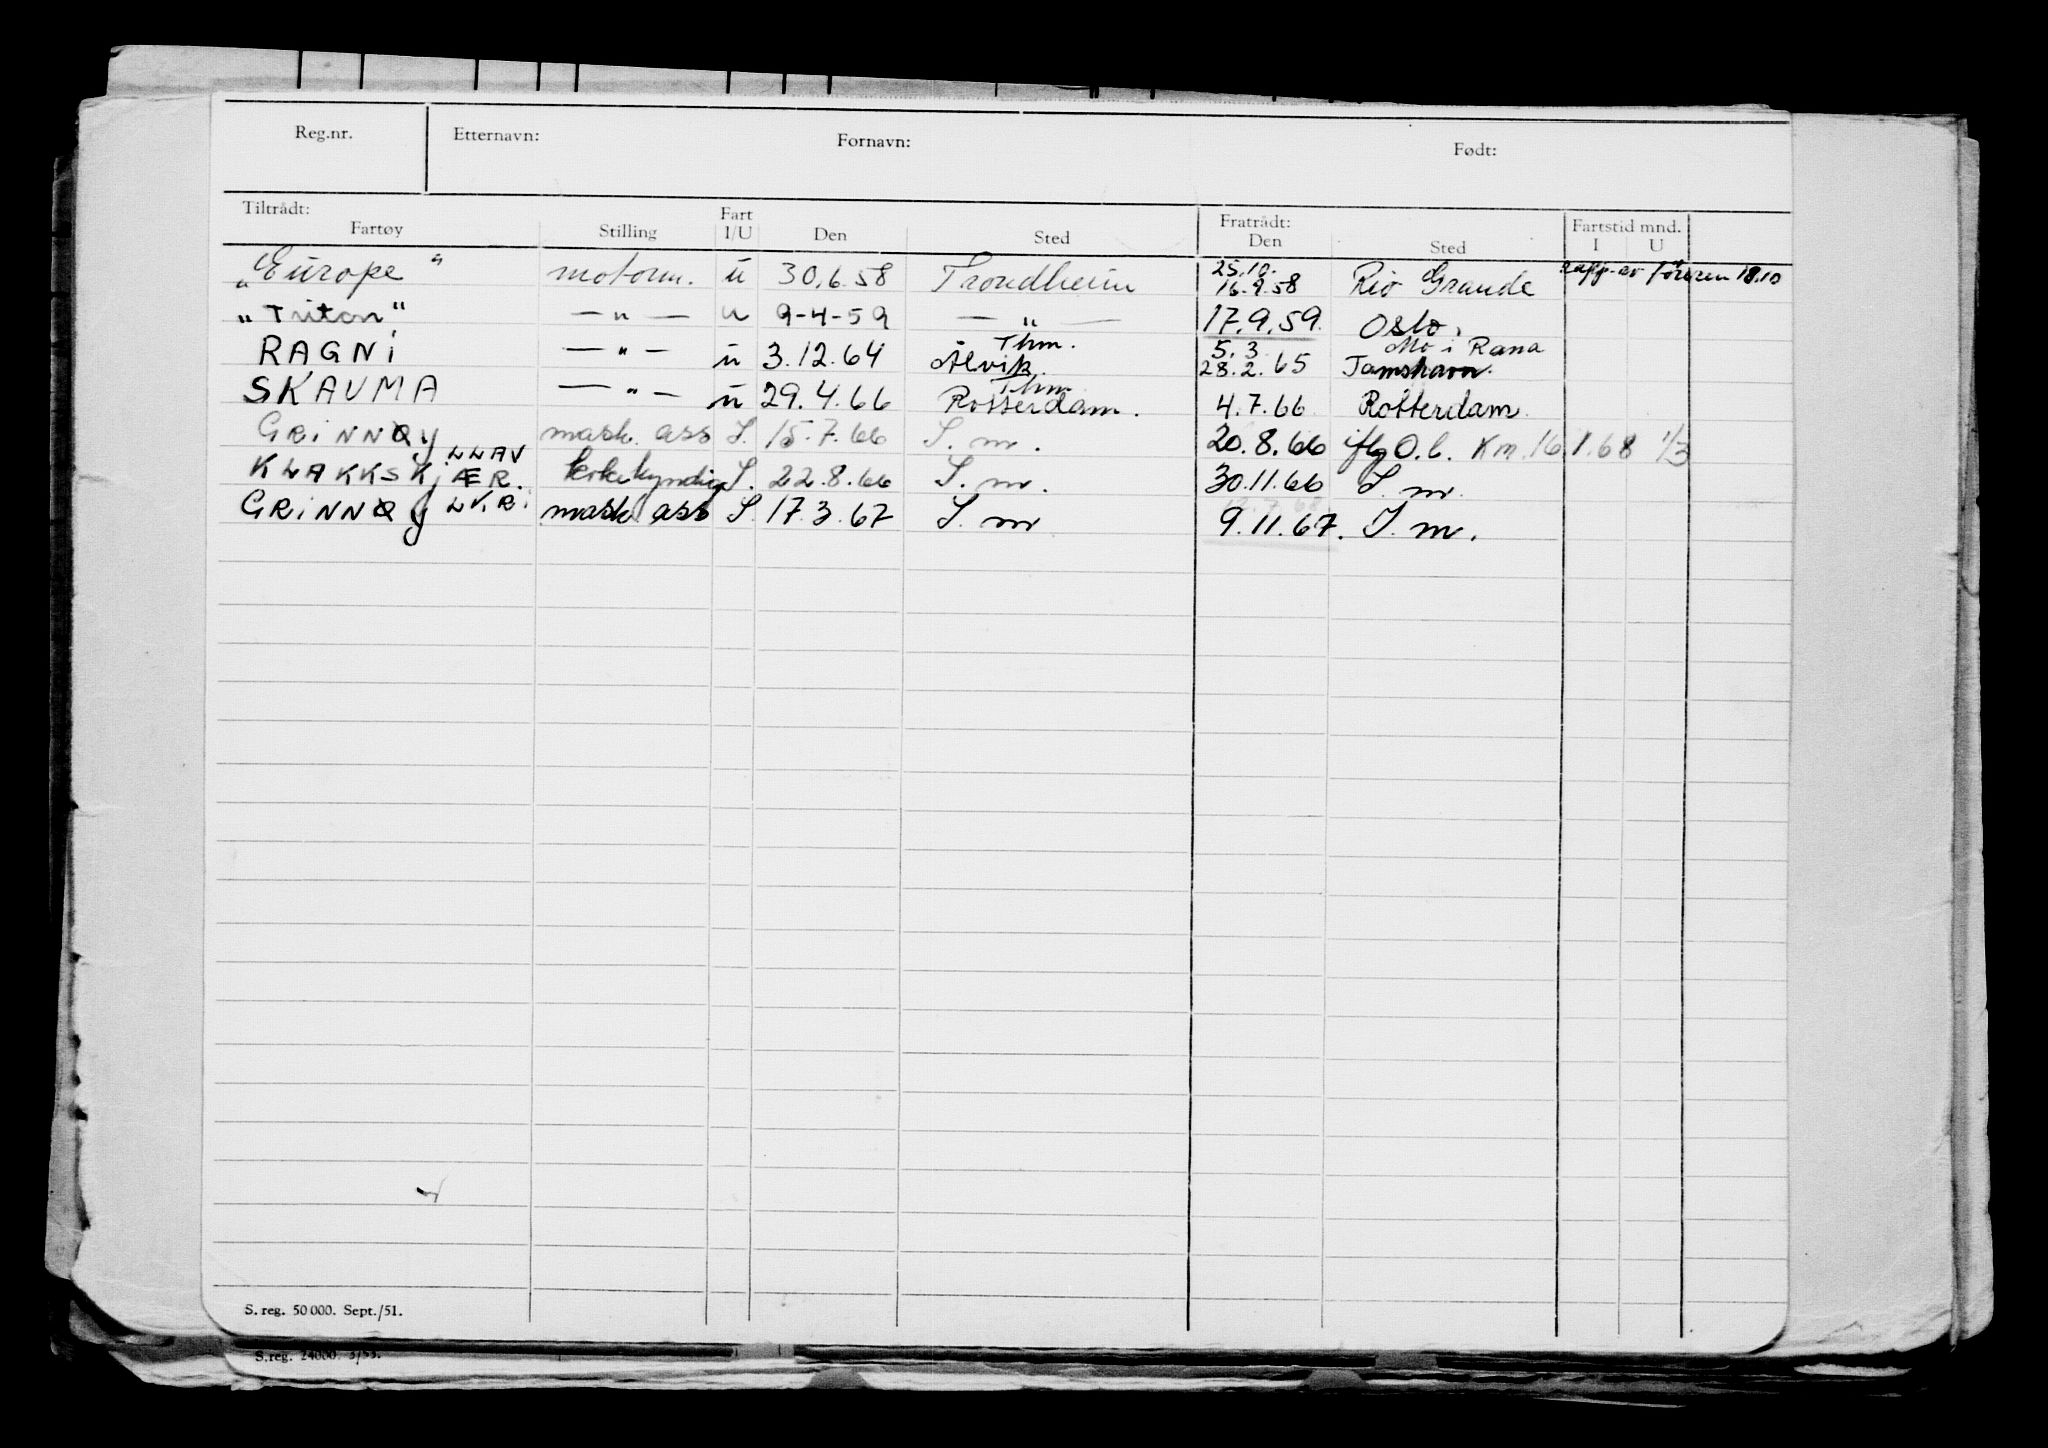 Reg.nr. Etternavn: Fornavn: Født:
Tiltrådt: Fartøy Stilling Fart I/U Den Sted Fratrådt: Den Sted Fartstid mnd. I U
„Europe" motorm. u 30.6.58 Trondheim 25.10. 16.9.58 Rio Grande rapp. av føreren 18.10
„Triton" — " — u 9-4-59 — " — 17.9.59. Oslo.
RAGNi — " — u 3.12.64 Thm. Ålvik. 5.3 28.2.65 Mo i Rana Tamshavn.
SKAUMA — " — u 29.4.66 Thm Rotterdam. 4.7.66 Rotterdam
GRiNNØy mask. ass I. 15.7.66 S. m. 20.8.66 iflg O.b. Km. 16 1.68 1/3
KLAKKSKjÆR. LLAV I. 22.8.66 S. m. 30.11.66 S. m.
GRiNNØy LKRi mask ass I. 17.3.67 S. m 9.11.67. S. m.
S. reg. 50 000. Sept./51.
S. reg. 24000. 3/53.